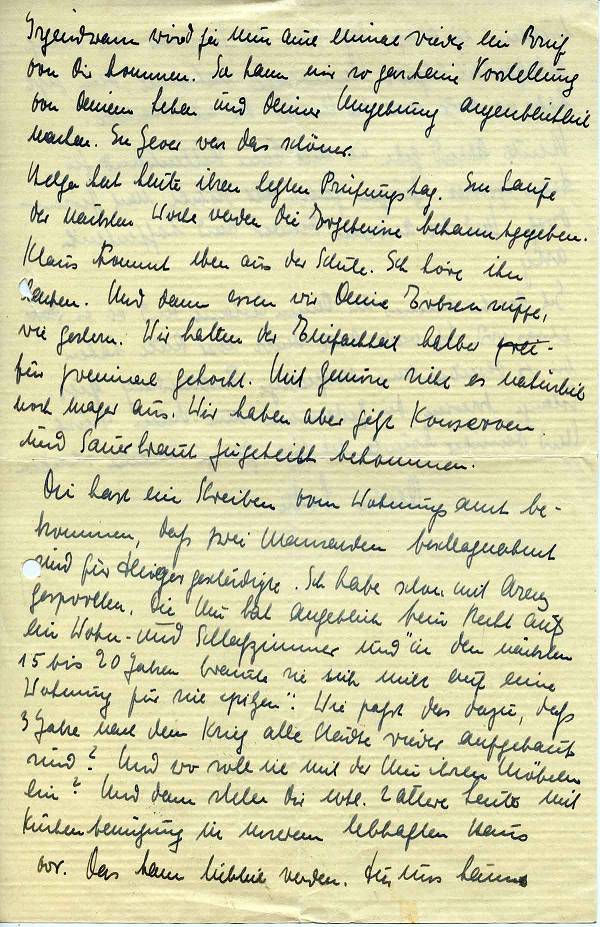 Irgendwann wird ja nun auch einmal wieder ein Brief
von Dir kommen. Ich kann mir so gar keine Vorstellung
von Deinem Leben und Deiner Umgebung augenblicklich
machen. In war das schöner.
Helga hat heute ihren letzten Prüfungstag. Im Laufe
der nächsten Woche werden die Ergebnisse bekanntgegeben.
Klaus kommt eben aus der Schule. Ich höre ihn
. Und dann essen wir Deine Erbsensuppe,
wie gestern. Wir hatten der Einfachheit halber
für zweimal gekocht. Mit Gemüse sieht es natürlich
noch mager aus. Wir haben aber jetzt Konserven
und Sauerkraut zugeteilt bekommen.
Du hast ein Schreiben vom Wohnungsamt be-
kommen, daß zwei Mansarden beschlagnahmt
sind für Fliegergeschädigte. Ich habe schon mit
gesprochen. Die hat angeblich kein Recht auf
ein Wohn- und Schlafzimmer und "in den nächsten
15 bis 20 Jahren brauche sie sich nicht auf eine
Wohnung für sie spitzen". Wie paßt das dazu, daß
3 Jahre nach dem Krieg alle Städte wieder aufgebaut
sind? Und wo soll sie mit ihren Möbeln
hin? Und dann stelle Dir evtl. 2 ältere Leute mit
Küchenbenutzung in unserem lebhaften Haus
vor. Das kann lieblich werden. Für uns kaum